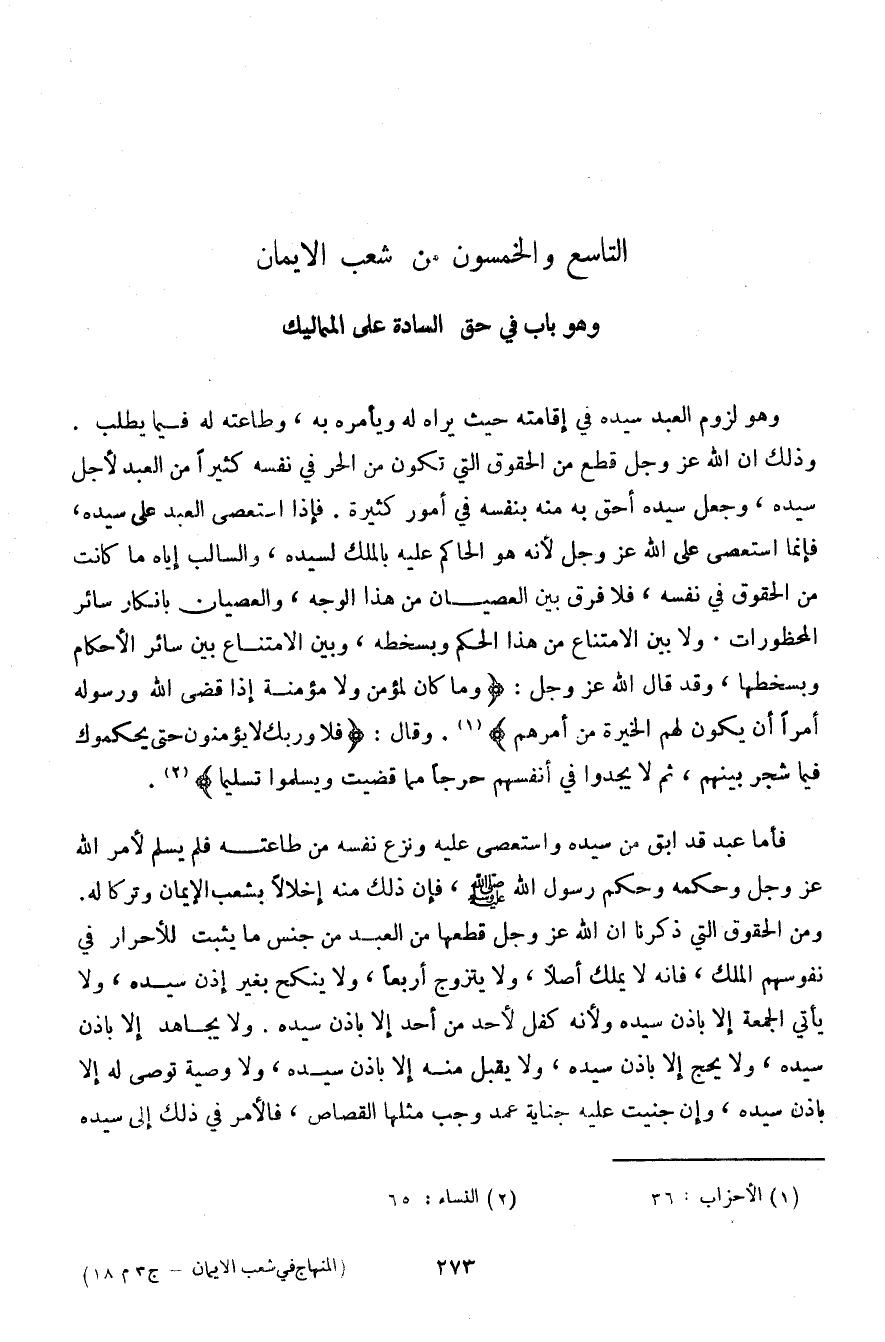 التاسع والخمسون من شعب الايمان
وهو باب في حق السادة على المماليك
وهو لزوم العبد سيده في إقامته حيث يراه له ويأمره به ، وطاعته له فيما يطلب .
وذلك ان الله عز وجل قطع من الحقوق التي تكون من الحر في نفسه كثيراً من العبد لأجل
سيده ، وجعل سيده أحق به منه بنفسه في أمور كثيرة . فإذا استعصى العبد على سيده ،
فإنما استعصى على الله عز وجل لأنه هو الحاكم عليه بالملك لسيده ، والسالب إياه ما كانت
من الحقوق في نفسه ، فلا فرق بين العصيان من هذا الوجه ، والعصيان بانكار سائر
المحظورات . ولا بين الامتناع من هذا الحكم وبسخطه ، وبين الامتناع بين سائر الأحكام
وبسخطها ، وقد قال الله عز وجل : ﴿ وما كان لمؤمن ولا مؤمنة إذا قضى الله ورسوله
أمراً أن يكون لهم الخيرة من أمرهم ﴾ (١) . وقال : ﴿ فلا وربك لا يؤمنون حتى يحكموك
فيما شجر بينهم ، ثم لا يجدوا في أنفسهم حرجاً مما قضيت ويسلموا تسليما ﴾ (٢) .
فأما عبد قد ابق من سيده واستعصى عليه ونزع نفسه من طاعته فلم يسلم لأمر الله
عز وجل وحكمه وحكم رسول الله ﷺ ، فإن ذلك منه إخلالاً بشعب الإيمان وتركا له .
ومن الحقوق التي ذكرنا ان الله عز وجل قطعها من العبد من جنس ما يثبت للأحرار في
نفوسهم الملك ، فانه لا يملك أصلاً ، ولا يتزوج أربعاً ، ولا ينكح بغير إذن سيده ، ولا
يأتي الجمعة إلا باذن سيده ولأنه كفل لأحد من أحد إلا باذن سيده . ولا يجاهد إلا باذن
سيده ، ولا يحج إلا باذن سيده ، ولا يقبل منه إلا باذن سيده ، ولا وصية توصى له إلا
باذن سيده ، وإن جنيت عليه جناية عمد وجب مثلها القصاص ، فالأمر في ذلك إلى سيده
(١) الأحزاب : ٣٦ (٢) النساء : ٦٥
٢٧٣ (المنهاج في شعب الايمان – ج ٣ م ١٨)